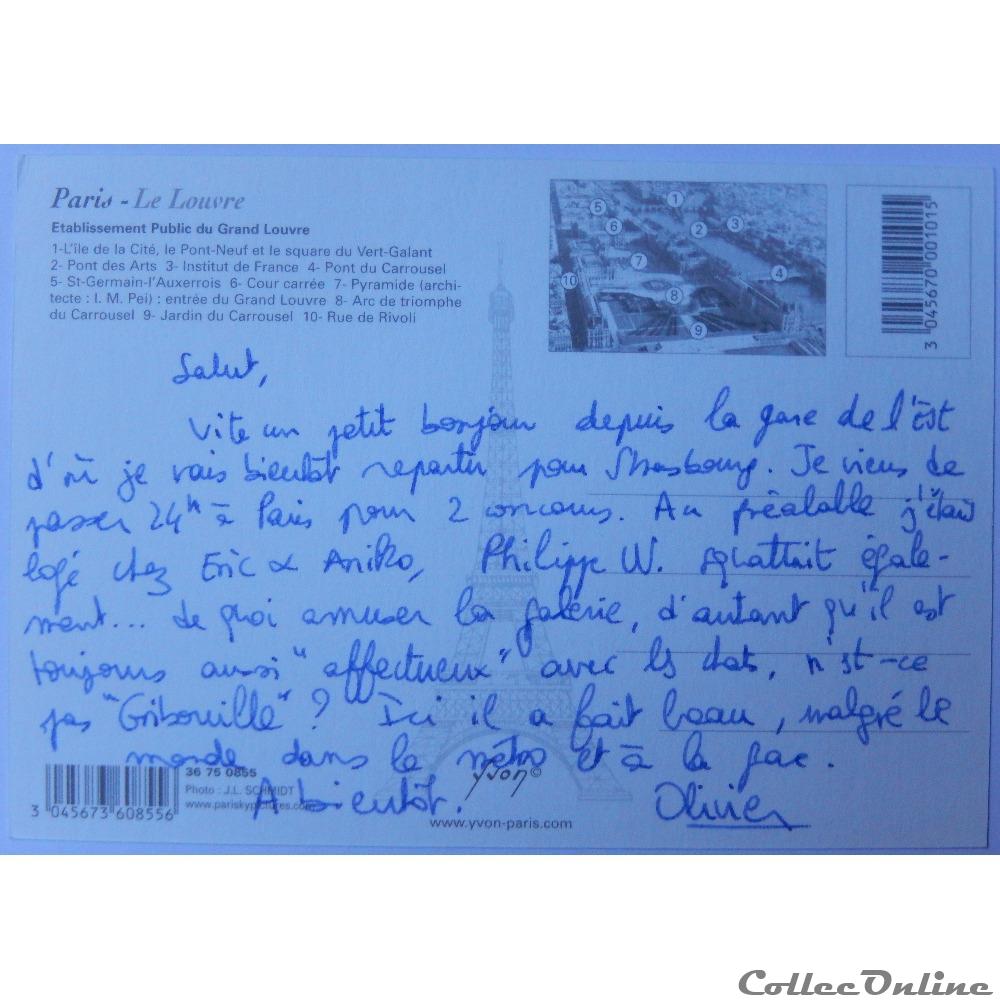 Paris - Le Louvre
Etablissement Public du Grand Louvre
1-L'île de la Cité, le Pont-Neuf et le square du Vert-Galant
2- Pont des Arts 3- Institut de France 4- Pont du Carrousel
5- St-Germain-l'Auxerrois 6- Cour carrée 7- Pyramide (archi-
tecte : I. M. Pei) : entrée du Grand Louvre 8- Arc de triomphe
du Carrousel 9- Jardin du Carrousel 10- Rue de Rivoli
1
5
6
2
3
7
4
10
8
9
3 045670 001015
Salut,
Vite un petit bonjour depuis la gare de l'Est
d'où je vais bientôt repartir pour Strasbourg. Je viens de
passer 24h à Paris pour 2 concours. Au préalable j'étais
logé chez Eric & Aniko, Philippe W. squattait égale-
ment... de quoi amuser la galerie, d'autant qu'il est
toujours aussi "affectueux" avec les chats, n'est-ce
pas "Gribouille" ? Ici il a fait beau, malgré le
monde dans le métro et à la fac.
A bientôt. Olivier
36 75 0855
Photo : J.L. SCHMIDT
www.pariskypictures.com
3 045673 608556
yvon©
www.yvon-paris.com
CollecOnline